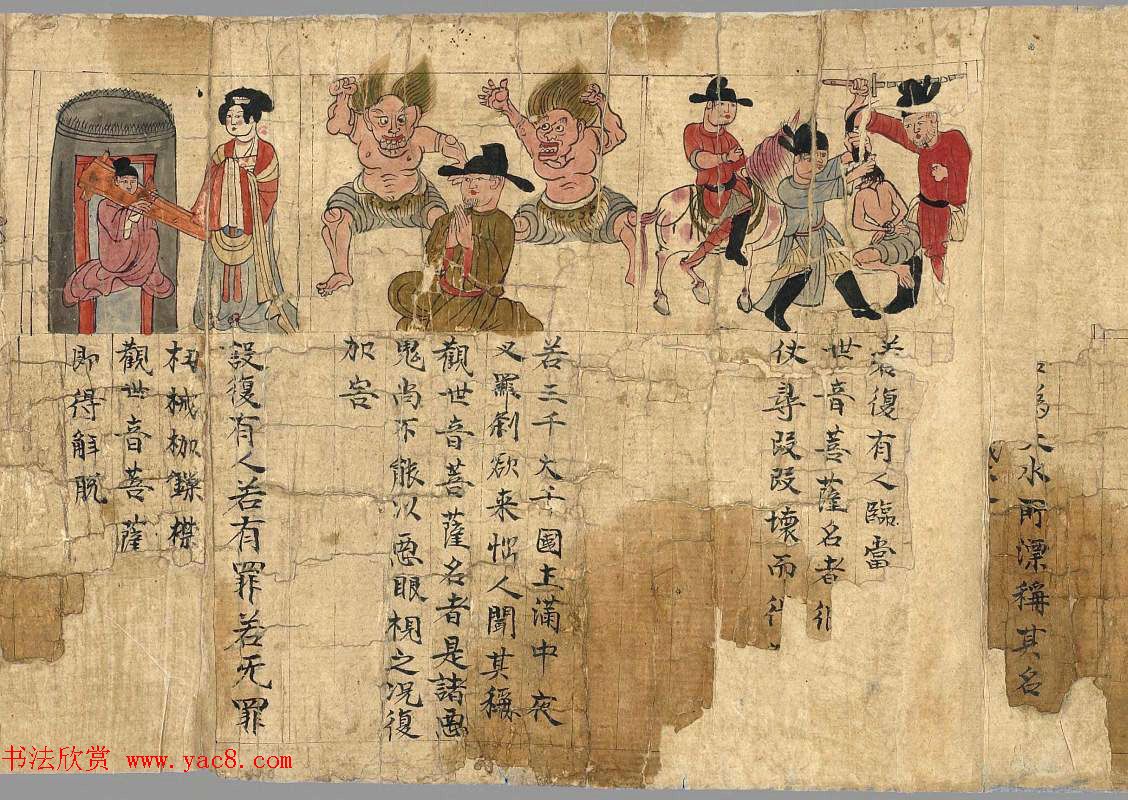 大水所漂稱其名
若復有人臨當
世音菩薩名者彼
仗尋段段壞而
若三千大千國土滿中夜
叉羅刹欲来惱人聞其稱
觀世音菩薩名者是諸惡
鬼尚不能以惡眼視之况復
加害
設復有人若有罪若无罪
杻械枷鏁撿
觀世音菩薩
即得解脫
书法欣赏 www.yac8.com